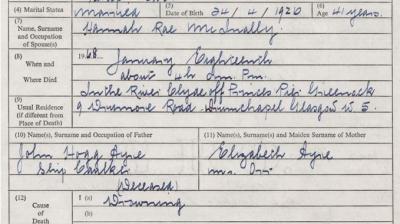 (4) Marital States
Married
(5) Date of Birth
24/4/1926
(6) Age
41 years.
(7) Name, Surname and Occupation of Spouse(s)
Hannah Rae McInally
(8) When and Where Died
1968. January Eighteenth
about 4h Pm.
In the River Clyde off Princes Pier Greenock
(9) Usual Residence (if different from Place of Death)
9 Road Drumchapel Glasgow W.5.
(10) Name(s), Surname and Occupation of Father
John Hogg
Ship Caulker
(Deceased)
(11) Name(s), Surname(s) and Maiden Surname of Mother
Elizabeth
(12) Cause of Death
I (a) Drowning
(b)